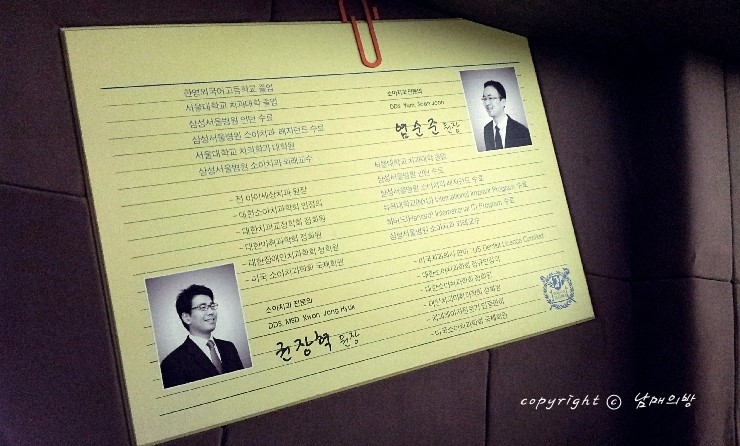 한영외국어고등학교 졸업
서울대학교 치과대학 졸업
삼성서울병원 인턴 수료
삼성서울병원 소아치과 레지던트 수료
서울대학교 치의학과 대학원
삼성서울병원 소아치과 외래교수
- 전 아이세상치과 원장
- 대한소아치과학회 인정의
- 대한치과교정학회 정회원
- 대한마취과학회 정회원
- 대한장애인치과학회 정회원
- 미국 소아치과학회 국제회원
소아치과 전문의
DDS, MSD. Kwon Jang Hyuk
권장혁 원장
소아치과 전문의
DDS. Yum, Soon Joon
염순준 원장
서울대학교 치과대학 졸업
삼성서울병원 인턴 수료
삼성서울병원 소아치과 레지던트 수료
뉴욕대학교(NYU) International Implant Program 수료
하버드(Harvard) International Program 수료
삼성서울병원 소아치과 외래교수
- 미국치과의사 면허 : US Dental License Certified
- 대한소아치과학회
- 대한소아치과학회 정회원
- 정회원
- 미국소아치과학회 국제회원
copyright ⓒ 남매의방